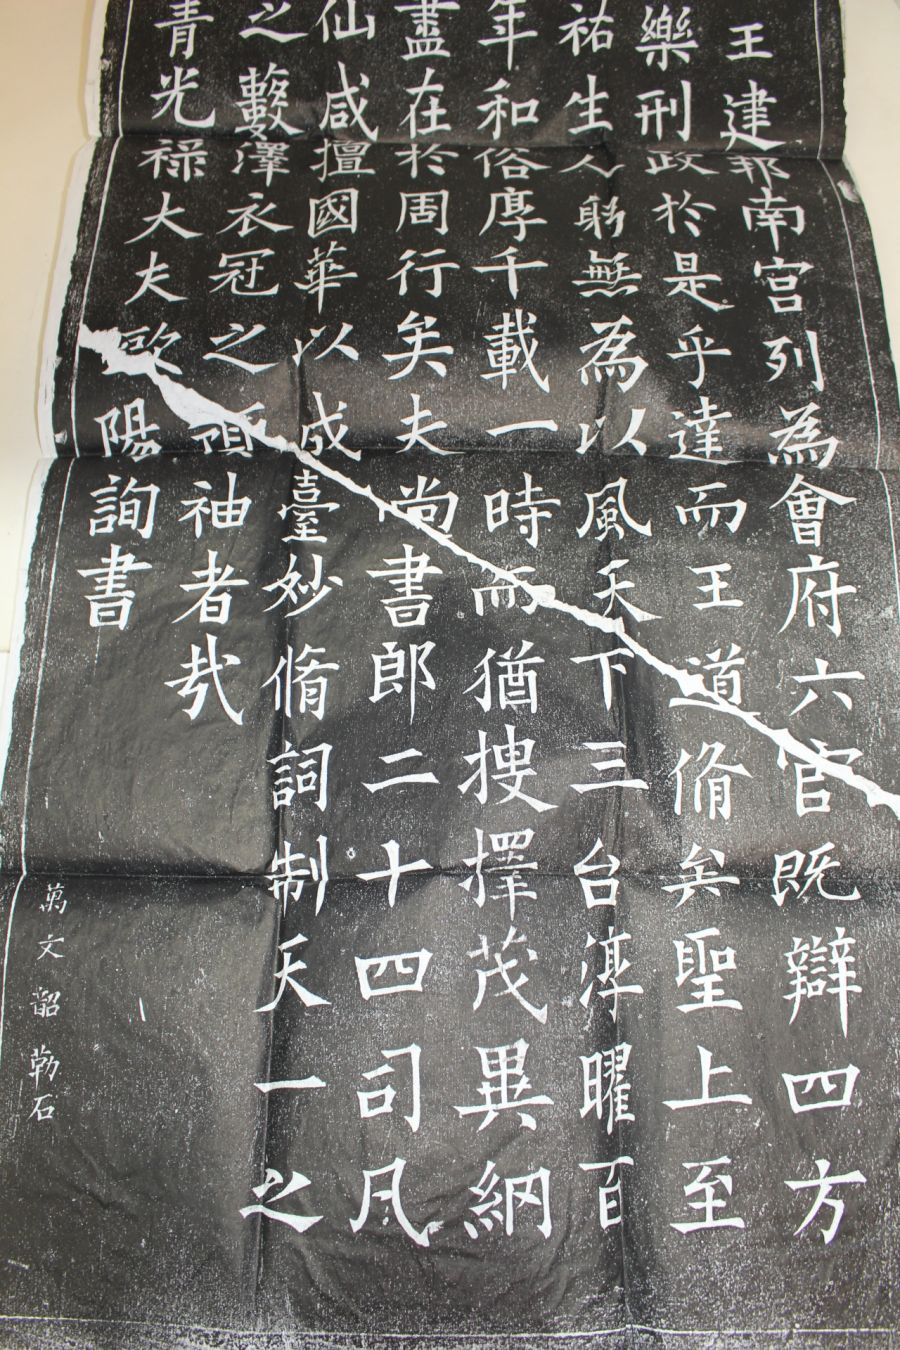 王建邦南宮列為會府六官既辯四方
樂刑政於是乎達而王道脩矣聖上至
祐生人躬無為以風天下三台淳曜百
年和俗厚千載一時而猶捜擇茂異網
盡在於周行矣夫尚書郎二十四司凡
仙咸擅國華以成臺妙脩詞制天一之
之藪澤衣冠之領袖者哉
青光祿大夫歐陽詢書
萬文韶勒石